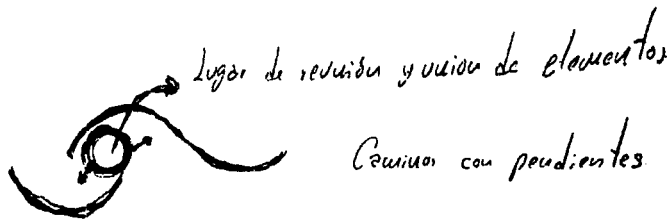 Lugar de reunión y union de elementos
Caminos con pendientes